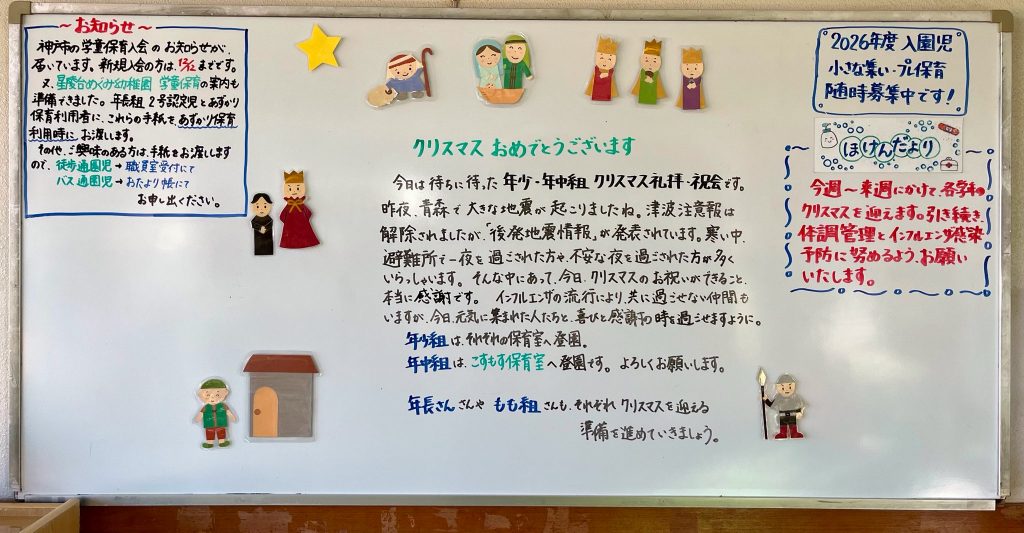 〜お知らせ〜
神戸市の学童保育入会のお知らせが、
届いています。新規入会の方は、12/12までです。
又、星陵台めぐみ幼稚園 学童保育の案内も
準備できました。年長組 2号認定児とあずかり
保育利用者に、これらの手紙をあずかり保育
利用時に、お渡しします。
その他、ご興味のある方は、手紙をお渡ししますので、
徒歩通園児→職員室受付にて
バス通園児→おたより帳にて
お申し出ください。
クリスマス おめでとうございます
今日は待ちに待った 年少・年中組 クリスマス礼拝・祝会です。
昨夜、青森で大きな地震が起こりましたね。津波注意報は
解除されましたが、「後発地震情報」が発表されています。寒い中、
避難所で一夜を過ごされた方や、不安な夜を過ごされた方が多く
いらっしゃいます。そんな中にあって、今日、クリスマスのお祝いができること、
本当に感謝です。 インフルエンザの流行により、共に過ごせない仲間も
いますが、今日、元気に集まれた人たちと、喜びと感謝の時を過ごせますように。
年少組は、それぞれの保育室へ登園。
年中組は、こすもす保育室へ登園です。よろしくお願いします。
年長さんさんや もも組さんも、それぞれ クリスマスを迎える
準備を進めていきましょう。
2026年度 入園児
小さな集い・プレ保育
随時募集中です!
ほけんだより
今週〜来週にかけて、各学年の
クリスマスを迎えます。引き続き、
体調管理とインフルエンザ感染
予防に努めるよう、お願い
いたします。